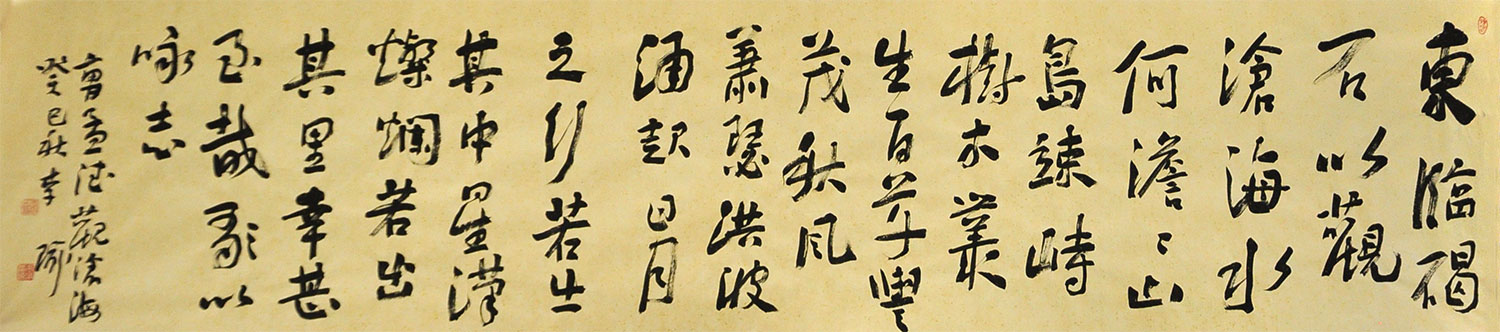 東臨碣
石以觀
滄海水
何澹〻山
島竦峙
樹木叢
生百草豐
茂秋風
蕭瑟洪波
涌起日月
之行若出
其中星漢
燦爛若出
其里幸甚
至哉歌以
咏志
曹孟德觀滄海
癸巳秋李瑜